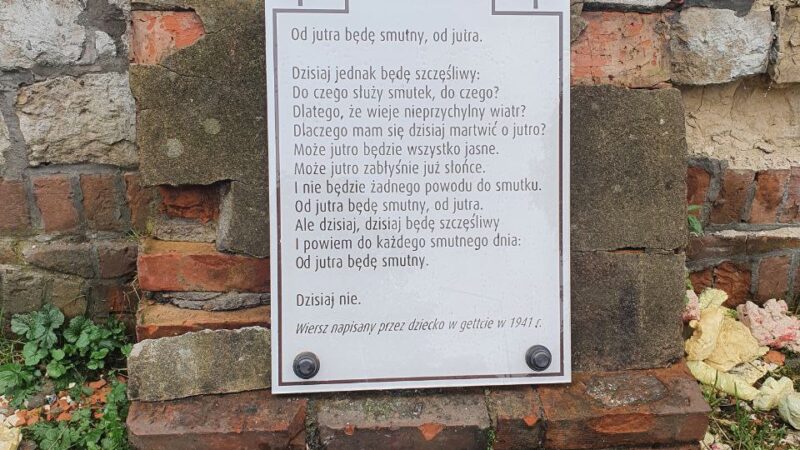 Od jutra będę smutny, od jutra.
Dzisiaj jednak będę szczęśliwy:
Do czego służy smutek, do czego?
Dlatego, że wieje nieprzychylny wiatr?
Dlaczego mam się dzisiaj martwić o jutro?
Może jutro będzie wszystko jasne.
Może jutro zabłyśnie już słońce.
I nie będzie żadnego powodu do smutku.
Od jutra będę smutny, od jutra.
Ale dzisiaj, dzisiaj będę szczęśliwy
I powiem do każdego smutnego dnia:
Od jutra będę smutny.
Dzisiaj nie.
Wiersz napisany przez dziecko w gettcie w 1941 r.